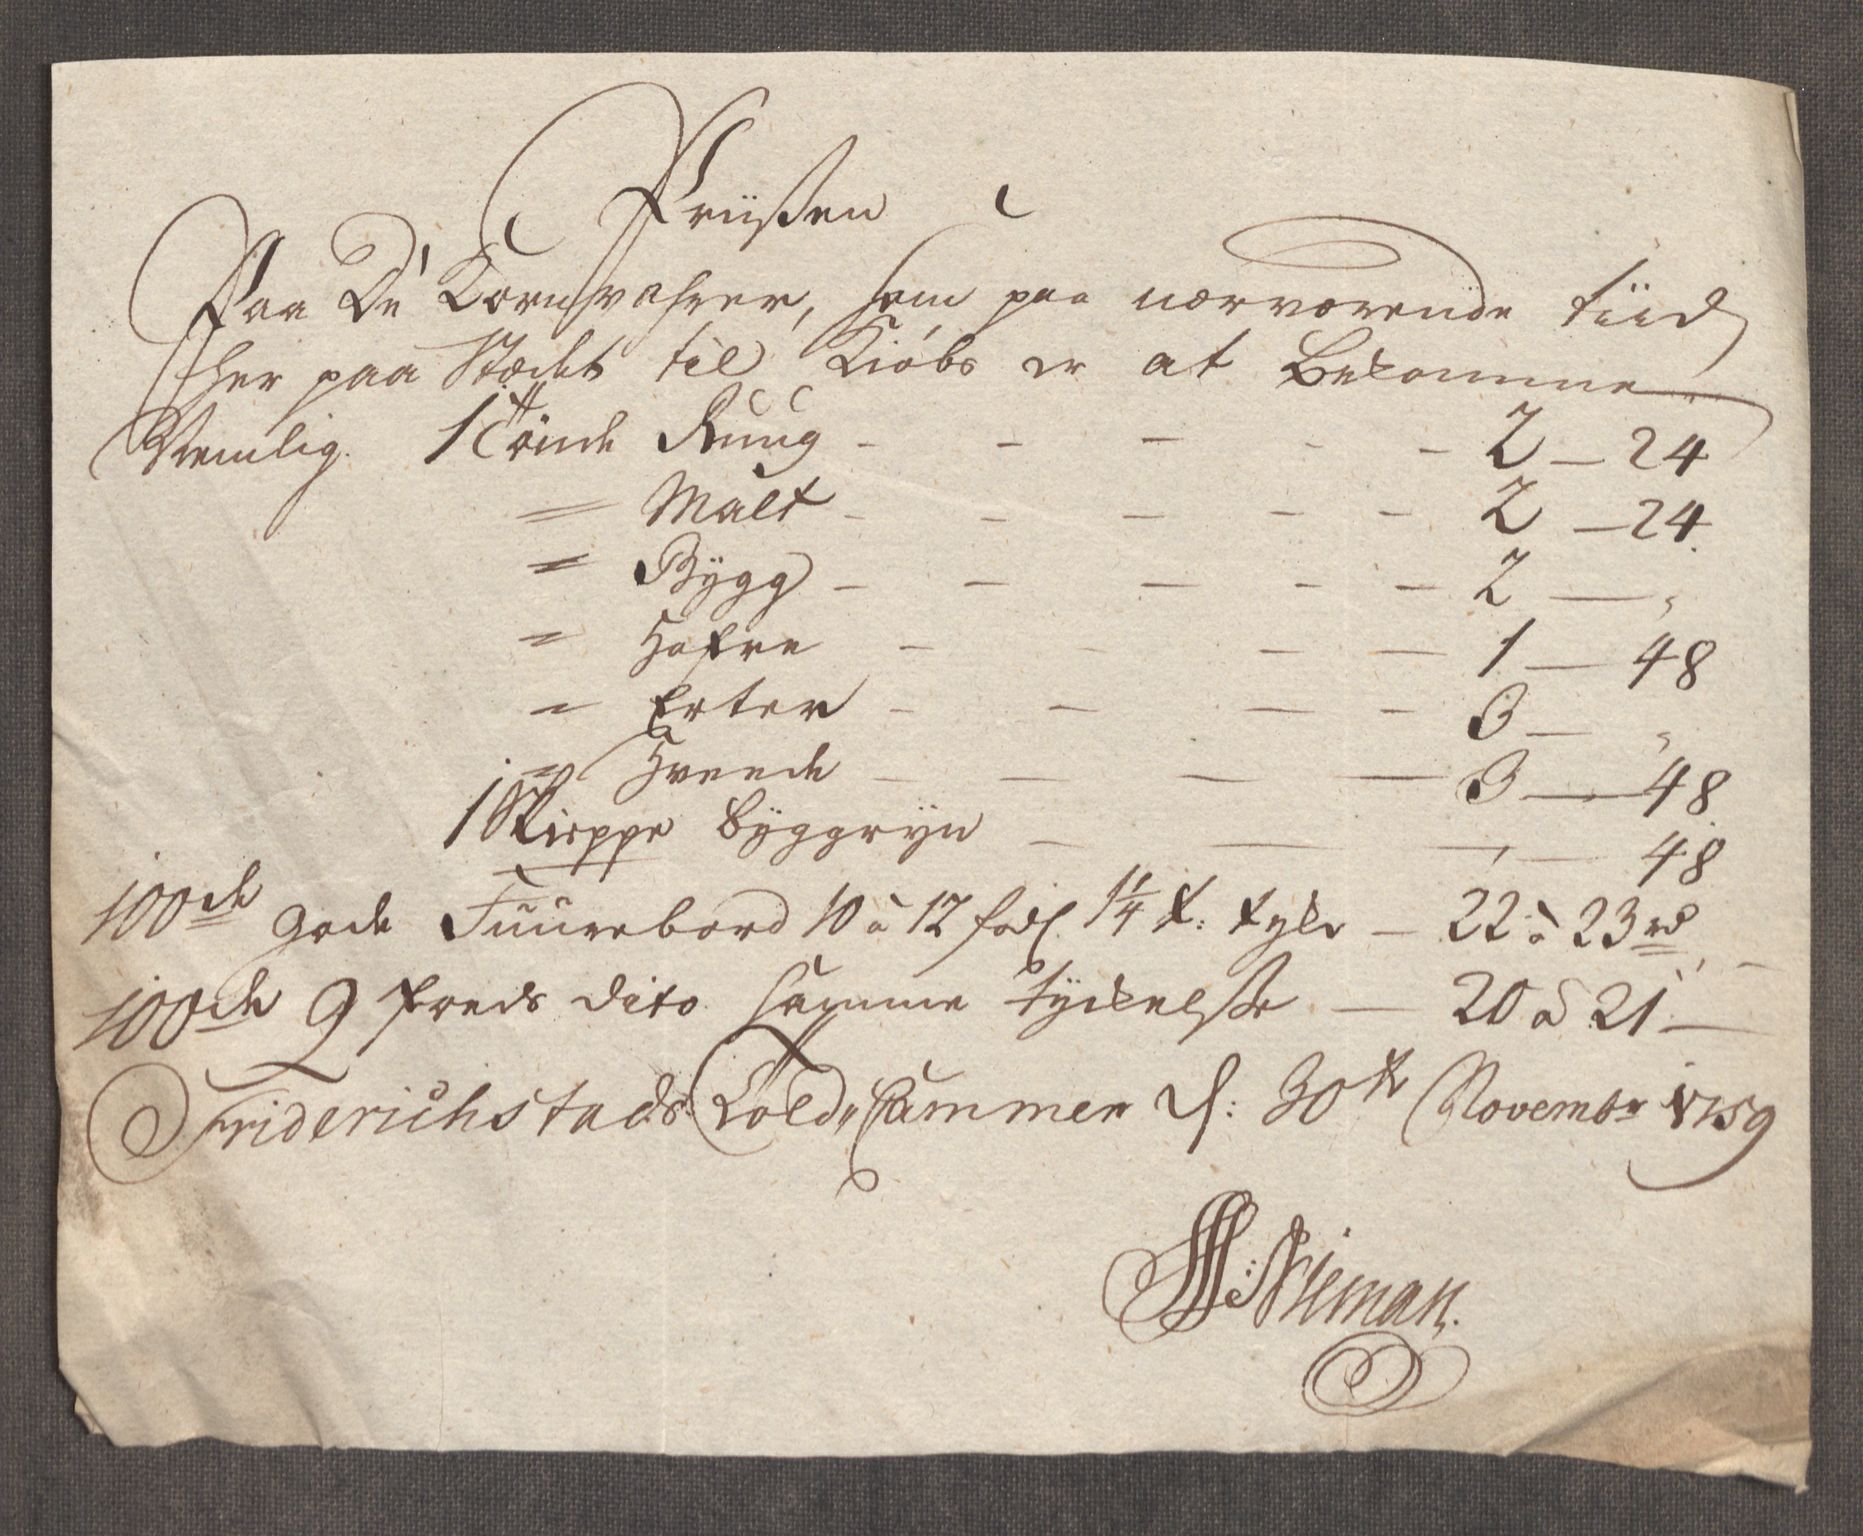 Priißen
Paa De Kornvahrer, som paa nærværende tiid
her paa Stædet til Kiöbs er at Bekomme
Nemlig. 1 Tönde Ruug - - - - - 2 - 24
= Malt - - - - - 2 - 24
= Bÿgg - - - - - 2 - „
= Hafre - - - - 1 - 48
= Erter - - - - 3 - „
= Hveede - - - - 3 - 48
1 Skieppe bÿggrÿn - - - - 48
100de gode Fuurebord 10 à 12 fods 1¼ t: tyke - 22 à 23 rd
100de 9 foeds dito samme tÿckelsse - 20 à 21 -
Friderichstads Told Cammer d: 30te Novembr 1759
Nieman.